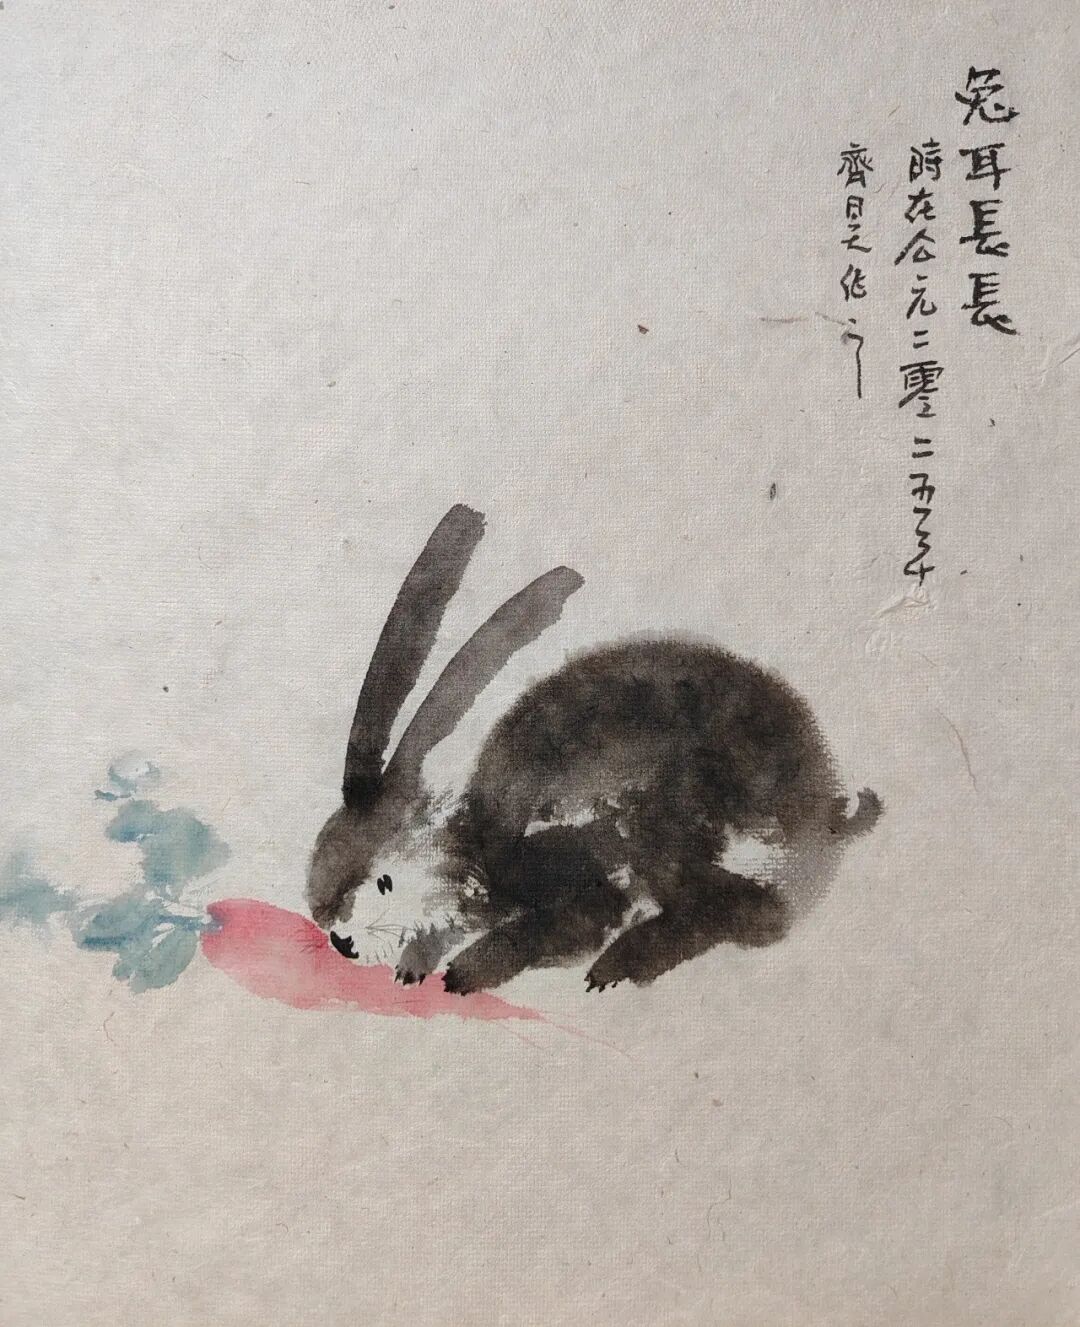 兔耳長長
時在公元二零二五年
齊昊作